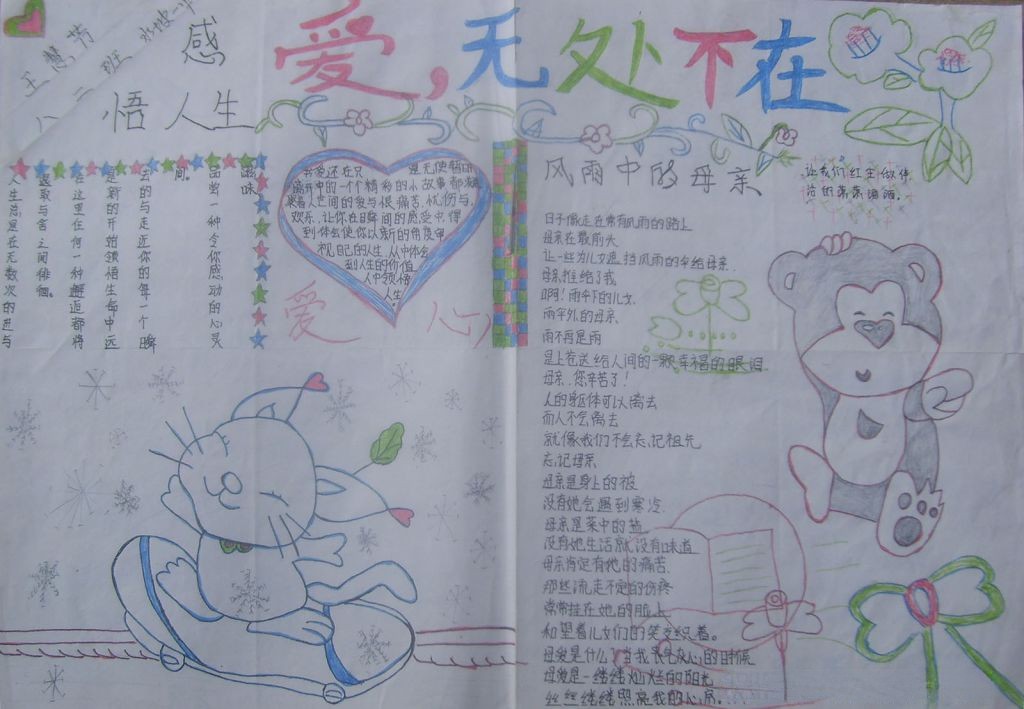 爱，无处不在
八二班
王慧芳
感
悟人生
滋味
间，
品尝一种令你感动的心灵
去的与走近你的每一个瞬
是新的开始领悟生命中远
在这里任何一种邂逅都将
退取与舍之间徘徊。
人生总是在无数次的进与
痛并中的一个个精彩的小故事都凝
聚着人世间的爱与恨痛苦、忧伤与
欢乐，让你在瞬间的感受中得
到体会使你以新的角度审
视自己的人生，从中体会
到人生的价值，
人中领悟
人生
爱
心
风雨中的母亲
日子像走在常有风雨的路上
母亲在最前头
让一些为儿女遮挡风雨的伞给母亲
母亲推给了我
啊！雨伞下的儿女
雨伞外的母亲
雨不再是雨
是上苍送给人间的一颗幸福的眼泪
母亲，您辛苦了！
人的躯体可以离去
而人不会离去
就像我们不会忘记祖先
忘记母亲
母亲是身上的被
没有她会遇到寒冷
母亲是菜中的盐
没有她生活就没有味道
母亲肯定有她的痛苦
那些流走不定的伤疼
常常挂在她的脸上
和望着儿女们的笑交织着。
母爱是什么？当我最气灰心的时候
母爱是一缕缕灿烂的阳光
丝丝缕缕照亮我的心房。